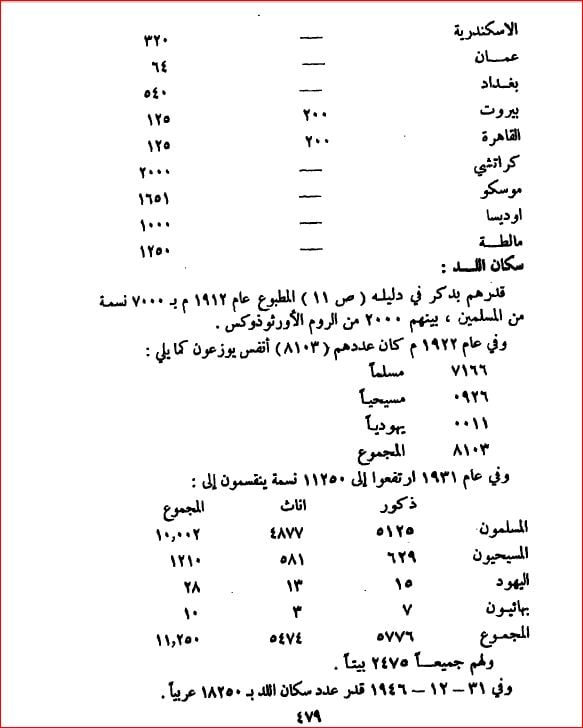 الاسكندرية — ٣٢٠
عمـــان — ٦٤
بغـداد — ٥٤٠
بيروت ٢٠٠ ١٢٥
القاهرة ٢٠٠ ١٢٥
كراتشي — ٢٠٠٠
موسكو — ١٦٥١
اوديسا — ١٠٠٠
مالطـــة — ١٢٥٠
سكان اللـد :
قدرهم بدكر في دليله ( ص ١١ ) المطبوع عام ١٩١٢ م بـ ٧٠٠٠ نسمة
من المسلمين ، بينهم ٢٠٠٠ من الروم الأورثوذوكس .
وفي عام ١٩٢٢ م كان عددهم ( ٨١٠٣ ) أنفس يوزعون كما يلي :
٧١٦٦ مسلماً
٠٩٢٦ مسيحيـاً
٠٠١١ يهوديـاً
٨١٠٣ المجموع
وفي عام ١٩٣١ ارتفعوا إلى ١١٢٥٠ نسمة ينقسمون إلى :
ذكور اناث المجموع
المسلمون ٥١٢٥ ٤٨٧٧ ١٠,٠٠٢
المسيحيون ٦٢٩ ٥٨١ ١٢١٠
اليهود ١٥ ١٣ ٢٨
بهائيـون ٧ ٣ ١٠
المجموع ٥٧٧٦ ٥٤٧٤ ١١,٢٥٠
ولهم جميعـــاً ٢٤٧٥ بيتاً .
وفي ٣١ – ١٢ – ١٩٤٦ قدر عدد سكان اللد بـ ١٨٢٥٠ عربياً .
٤٧٩